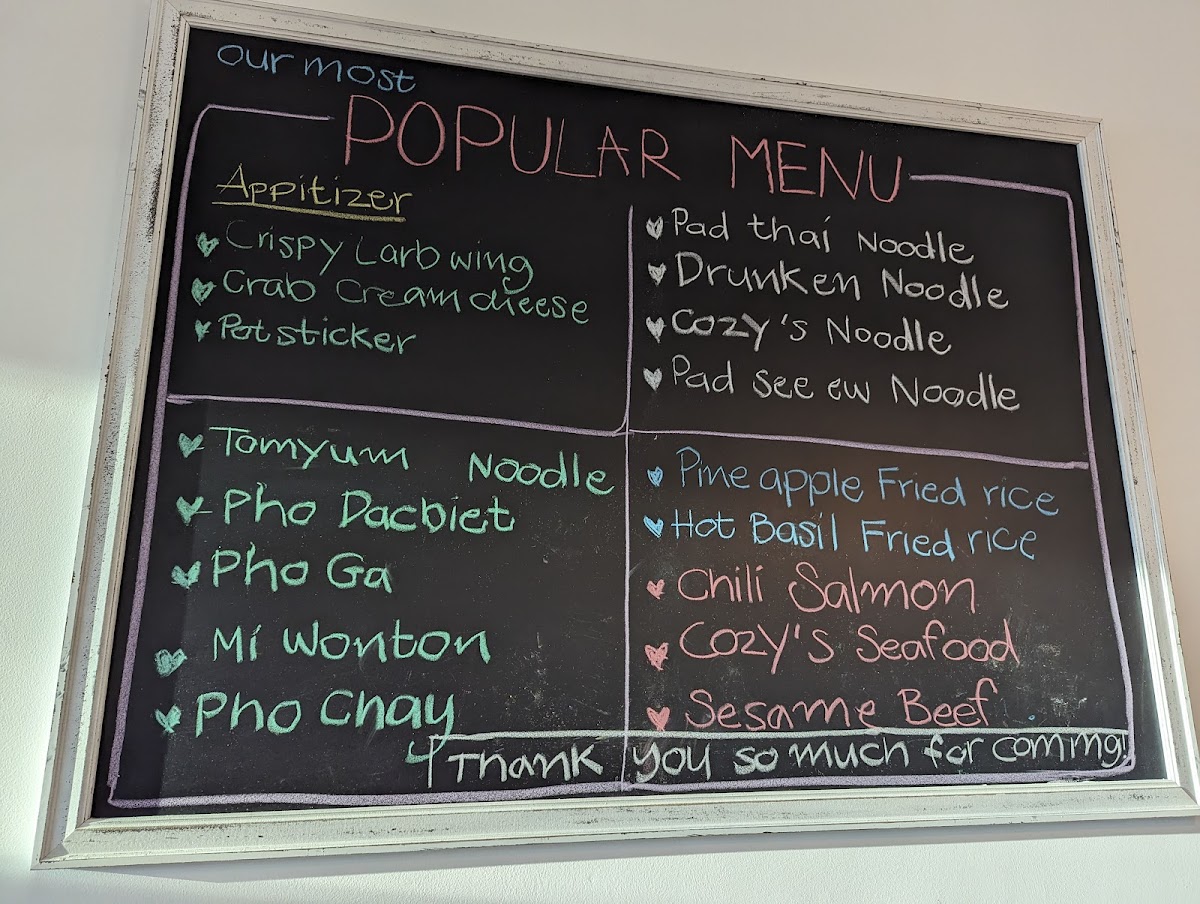 our most
POPULAR MENU
Appitizer
Crispy Larb wing
Crab Cream cheese
Potsticker
Pad thai Noodle
Drunken Noodle
Cozy's Noodle
Pad see ew Noodle
Tomyum Noodle
Pho Dacbiet
Pho Ga
Mi Wonton
Pho Chay
Pine apple Fried rice
Hot Basil Fried rice
Chili Salmon
Cozy's Seafood
Sesame Beef
Thank you so much for coming!